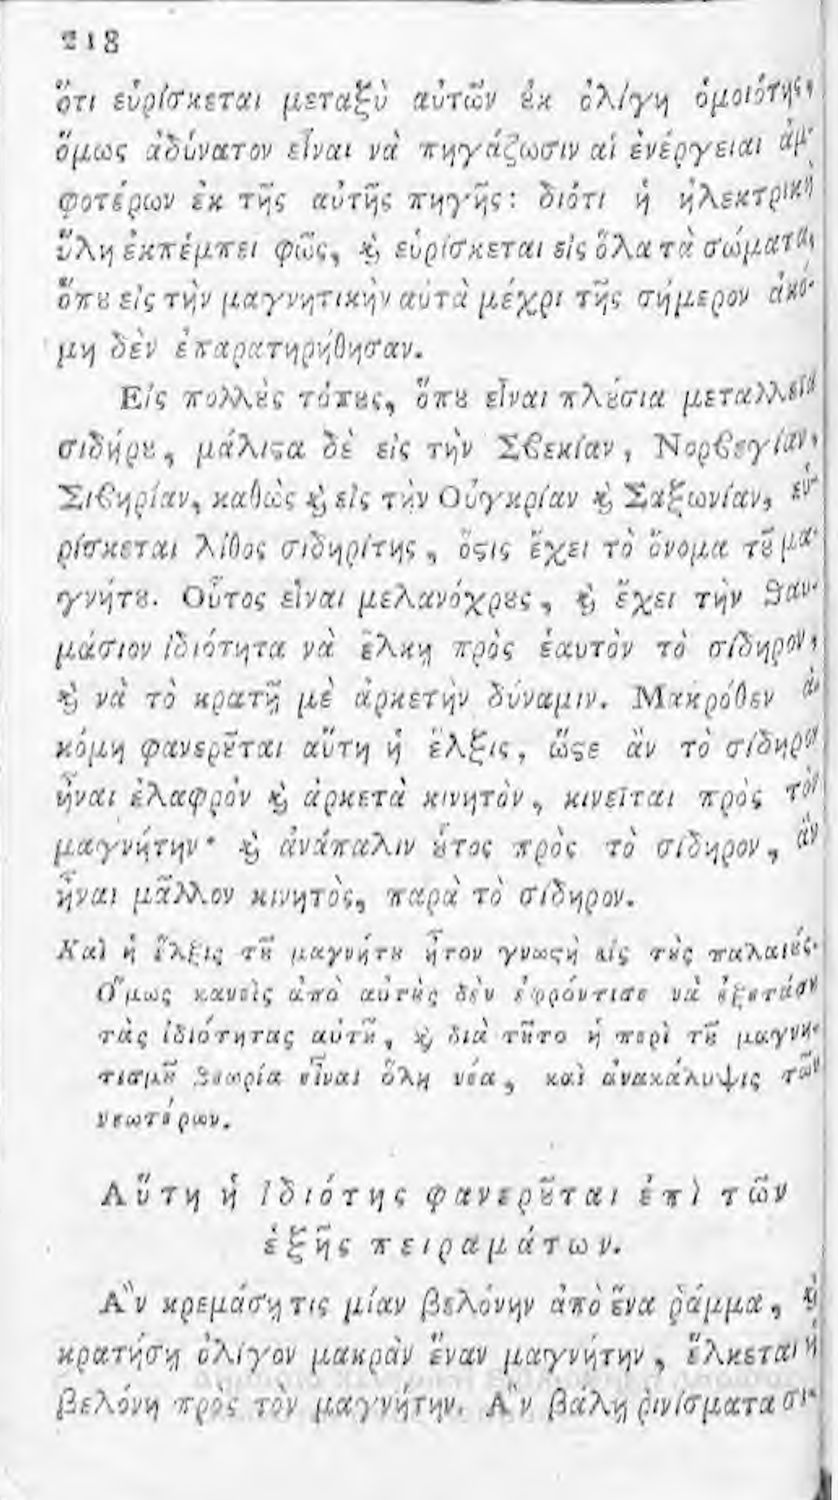 218
ὅτι εὑρίσκεται μεταξὺ αὐτῶν ȣ̓κ ὀλίγη ὁμοιότης,
ὅμως ἀδύνατον εἶναι νὰ πηγάζωσιν αἱ ἐνέργειαι ἀμ-
φοτέρων ἐκ τῆς αὐτῆς πηγῆς: διότι ἡ ἠλεκτρικὴ
ὕλη ἐκπέμπει φῶς, ϗ̀ εὑρίσκεται εἰς ὅλα τὰ σώματα,
ὅπȣ εἰς τὴν μαγνητικὴν αὐτὰ μέχρι τῆς σήμερον ἀκό-
μη δὲν ἐπαρατηρήθησαν.
Εἰς πολλȣ̀ς τόπȣς, ὅπȣ εἶναι πλȣ́σια μεταλλεῖα
σιδήρȣ, μάλιϛα δὲ εἰς τὴν Σβεκίαν, Νορβεγίαν,
Σιβηρίαν, καθὼς ϗ̀ εἰς τὴν Οὐγκρίαν ϗ̀ Σαξωνίαν, εὑ-
ρίσκεται λίθος σιδηρίτης, ὅϛις ἔχει τὸ ὄνομα τȣ͂ μα-
γνήτȣ. Οὗτος εἶναι μελανόχρȣς, ϗ̀ ἔχει τὴν ϑαυ-
μάσιον ἰδιότητα νὰ ἕλκῃ πρὸς ἑαυτὸν τὸ σίδηρον,
ϗ̀ νὰ τὸ κρατῇ μὲ ἀρκετὴν δύναμιν. Μακρόθεν ἀ-
κόμη φανερȣ͂ται αὕτη ἡ ἕλξις, ὥϛε ἂν τὸ σίδηρον
ἦναι ἐλαφρὸν ϗ̀ ἀρκετὰ κινητὸν, κινεῖται πρὸς τὸν
μαγνήτην· ϗ̀ ἀνάπαλιν ȣ̔͂τος πρὸς τὸ σίδηρον, ἂν
ἦναι μᾶλλον κινητὸς, παρὰ τὸ σίδηρον.
Καὶ ἡ ἕλξις τȣ͂ μαγνήτȣ ἦτον γνωϛὴ εἰς τȣ̀ς παλαιȣ́ς.
Ὅμως κανεὶς ἀπὸ αὐτȣ̀ς δὲν ἐφρόντισε νὰ ἐξετάσῃ
τὰς ἰδιότητας αὐτȣ͂, ϗ̀ διὰ τȣ͂το ἡ περὶ τȣ͂ μαγνη-
τισμȣ͂ ϑεωρία εἶναι ὅλη νέα, καὶ ἀνακάλυψις τῶν
νεωτέρων.
Αὕτη ἡ ἰδιότης φανερȣ͂ται ἐπὶ τῶν
ἑξῆς πειραμάτων.
Ἂν κρεμάσῃ τις μίαν βελόνην ἀπὸ ἕνα ῥάμμα, ϗ̀
κρατήσῃ ὀλίγον μακρὰν ἕναν μαγνήτην, ἕλκεται ἡ
βελόνη πρὸς τὸν μαγνήτην. Ἂν βάλῃ ῥινίσματα σι-